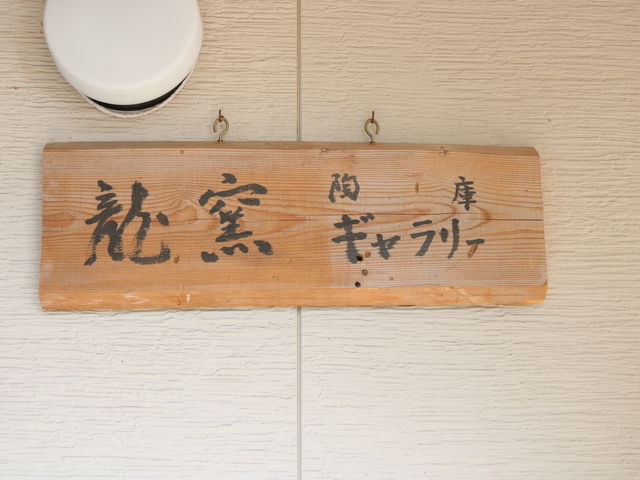 龍窯
陶庫
ギャラリー